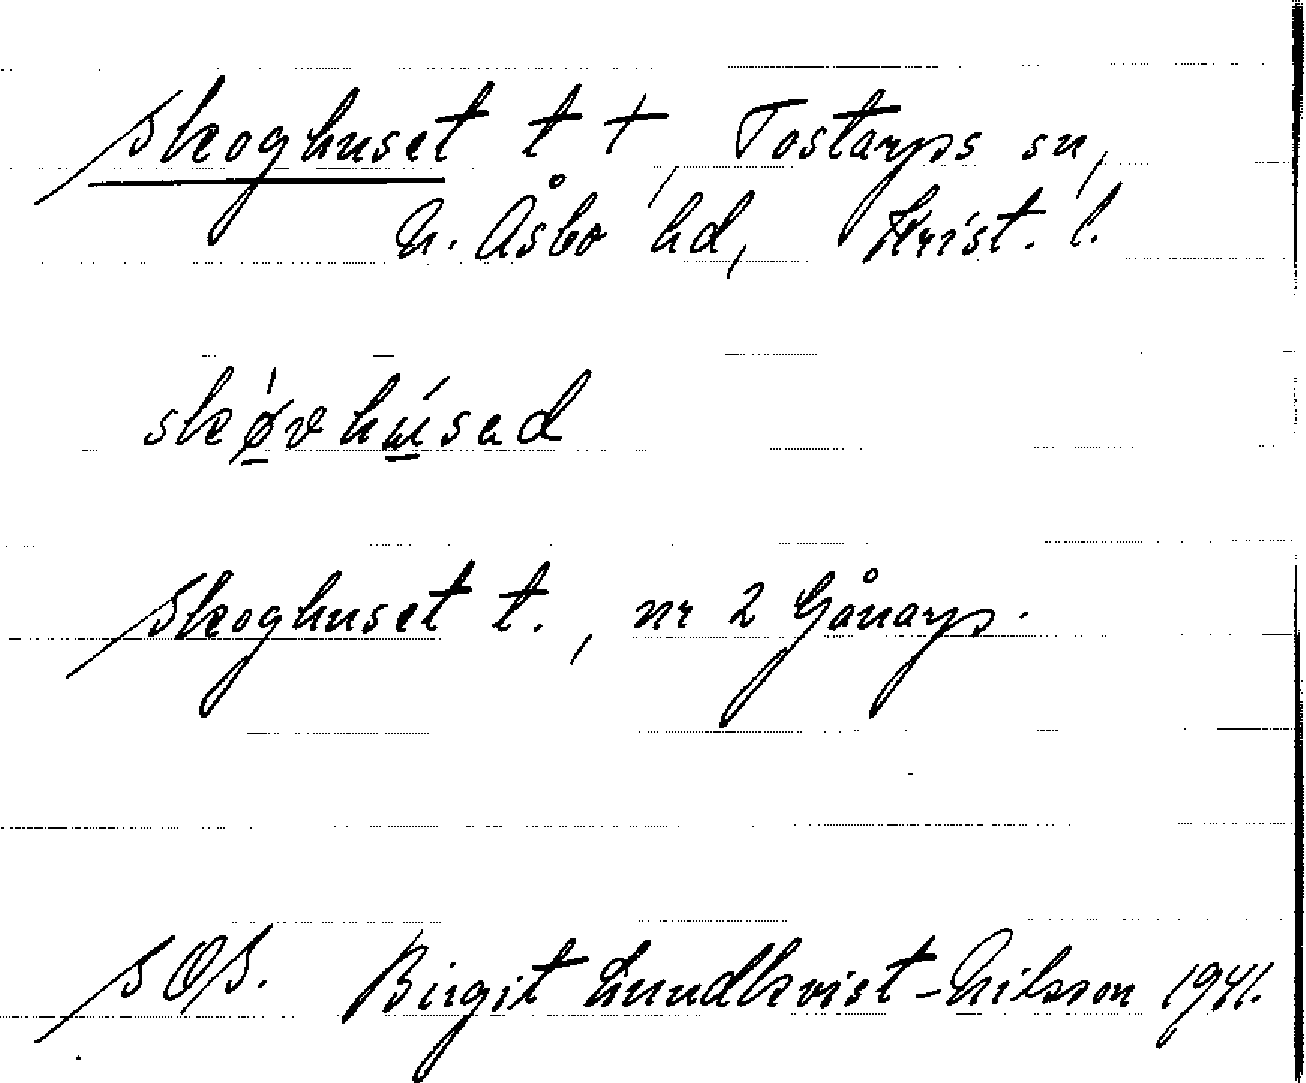 Skoghuset t †, Tostarps sn,
N. Åsbo hd, Krist. l.
skø̠̍vhú̠sad
Skoghuset t., nr 2 Gånarp.
SOS. Birgit Lundkvist-Nilsson 1941.